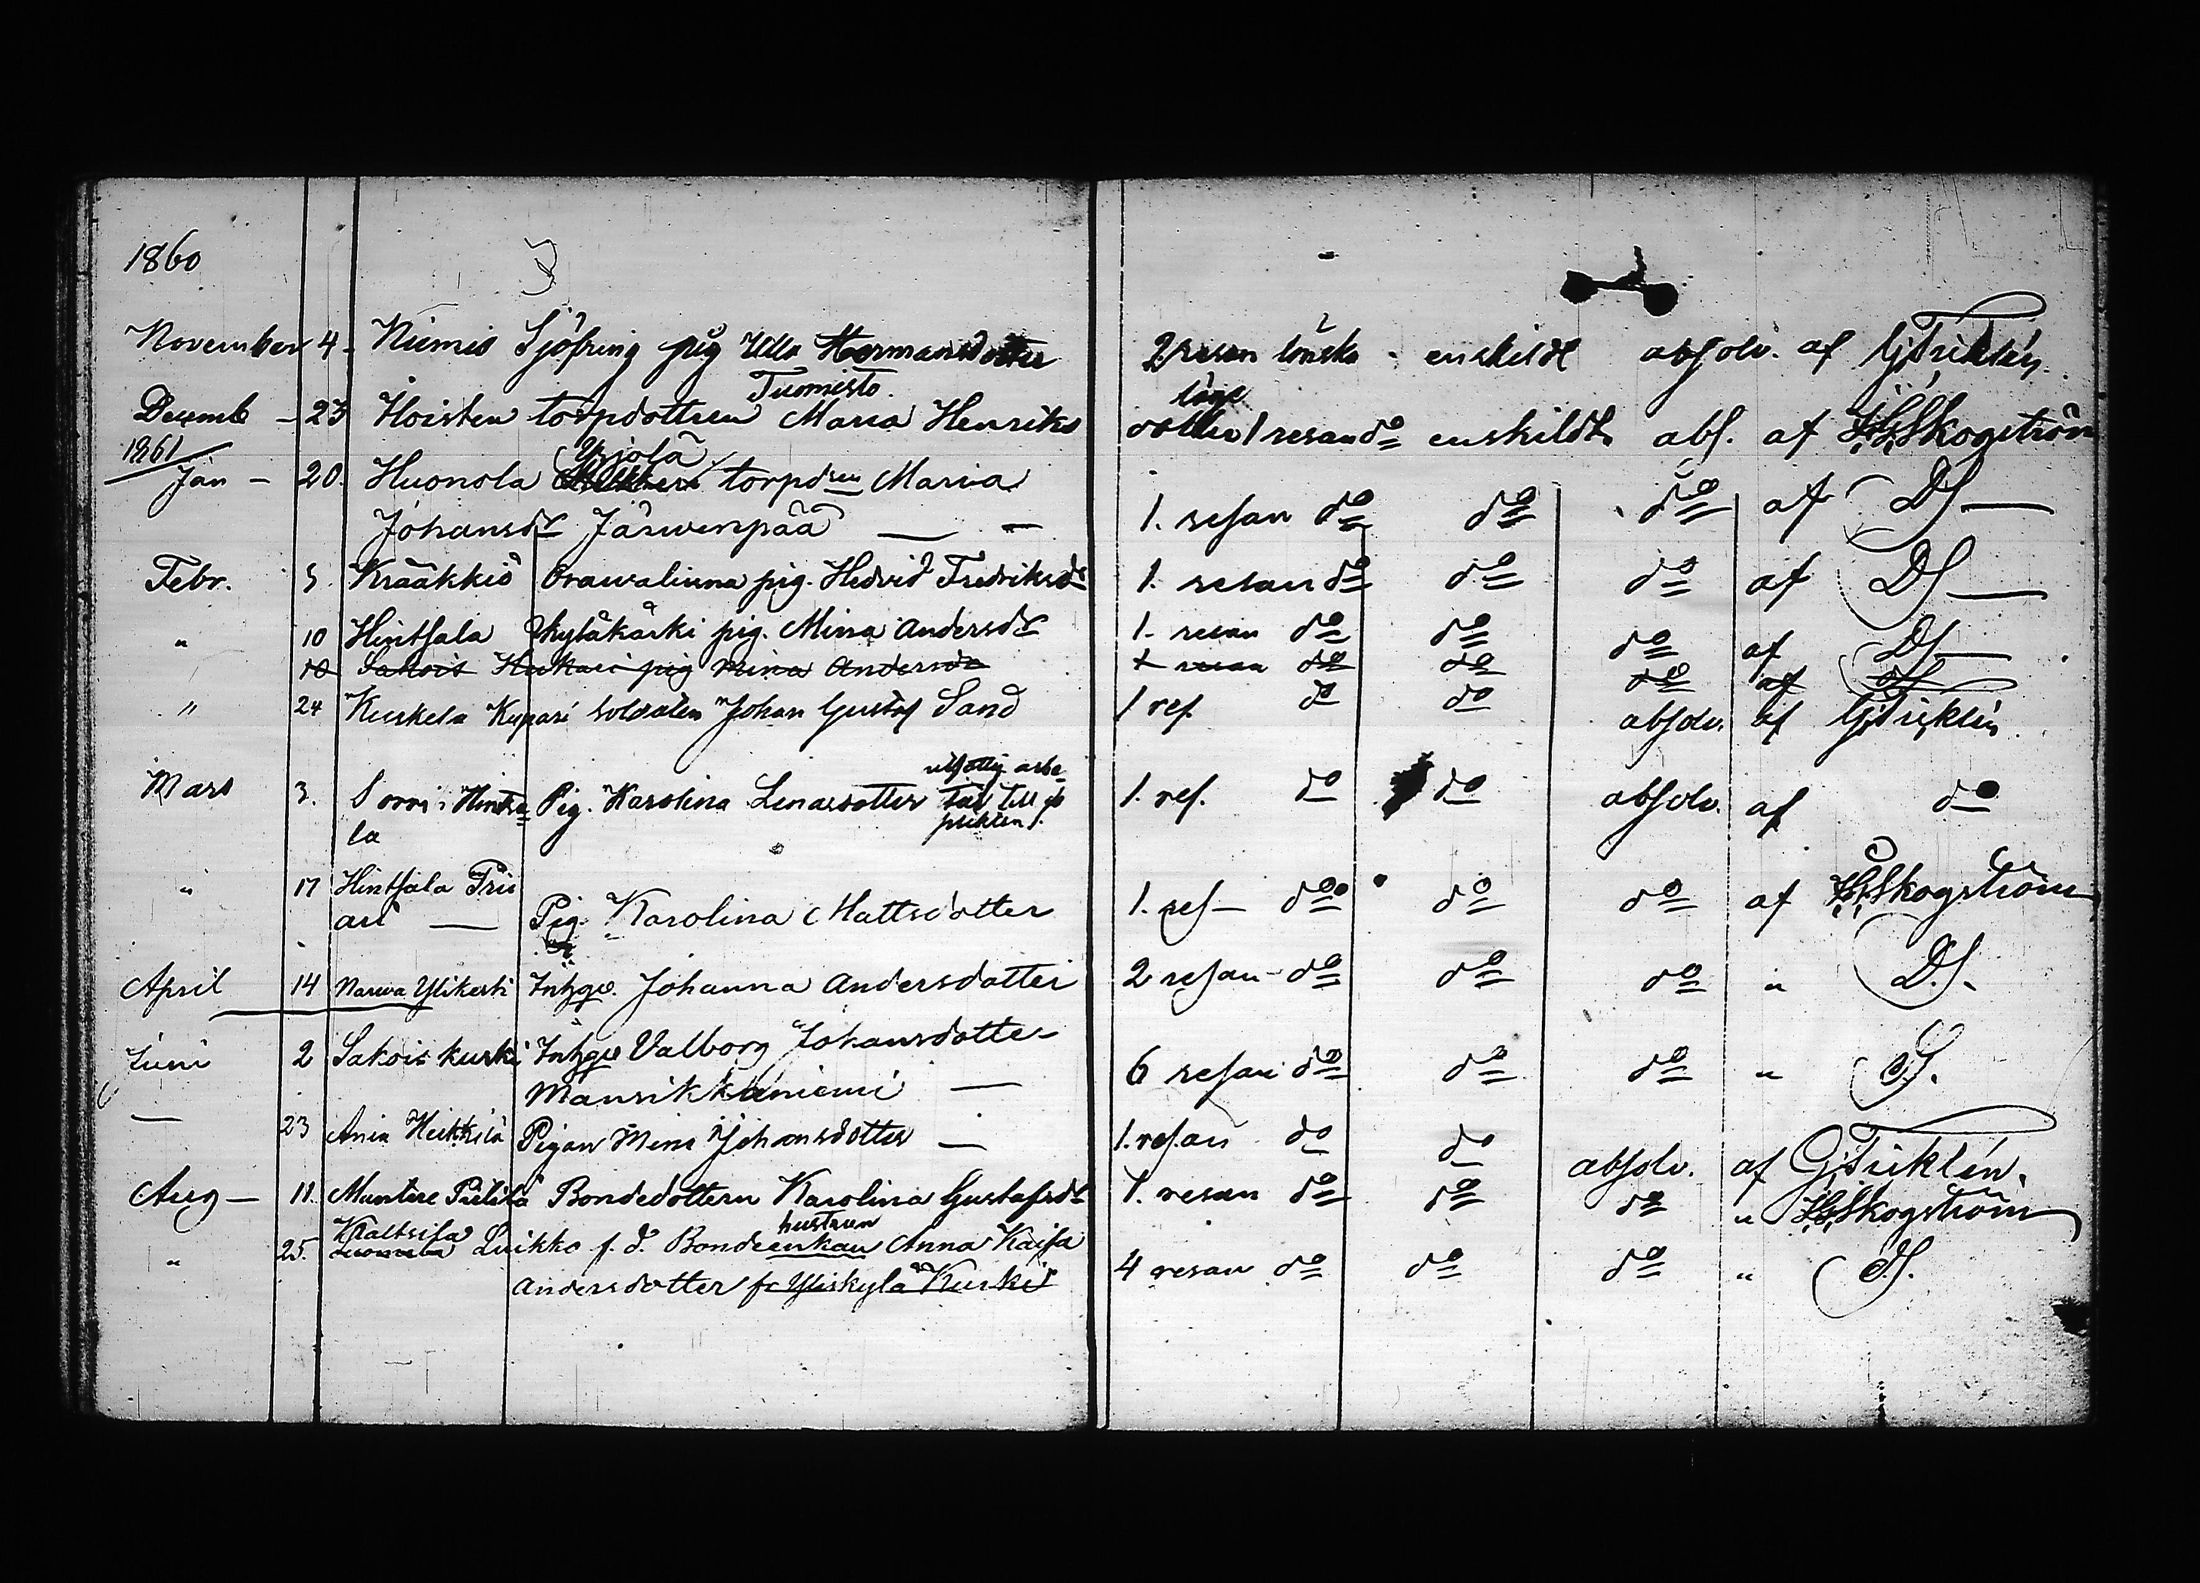 1860
November 4 - Niemis Sjöfring pig Ulla Hermansdotter 2 resan lönska - enskildt absolv. af G. Fricklén
Tuomisto. läge
Decemb - 23 Hoisten torpdottren Maria Henriks dotter 1 resan do enskildt abs. af Skogström
1861 Yrjölä
Jan - 20. Huonola torpdren Maria
Johansdr Järwenpää — — 1. resan do do do af DS —
Febr. 3. Krääkkiö Orawalinna pig. Hedvid Fredriksdr 1. resan do do do af DS —
" 10 Hintsala Kyläkärki pig. Mina Andersdr 1. resan do do do af DS —
10 Sakois Kukari pig Mina Andersdr 1 resan do do do af DS
" 24 Kuskela Kupari soldaten Johan Gustaf Sand 1 res. do do absolv. af G. Fricklén
utfattig arbe-
Mars 3. Sorri i Hintsa- Pig. Karolina Lenasdotter 1. res. do do absolv. af do
la
" 17 Hintsala Pri
ari — Pig. Karolina Mattsdotter 1. res — do do do af Skogström
April 14 Narwa Ylikerti Inhgo. Johanna Andersdotter 2 resan - do do do " D.S.
Juni 2 Sakois kurki Inhgo Valborg Johansdotte-
Mansikkaniemi — 6 resan do do do " DS.
— 23 Ania Heikkilä Pigan Mina Johansdotter — 1. resan do do absolv. af G. Fricklén.
Aug — 11. Muntere Pietilä Bondedottern Karolina Gustafsdr 1. resan do do do " Skogström
Kaltsila hustrun
" 25. Luikko f. d. Bondeenkan Anna Kaisa 4 resan do do do " DS.
Andersdotter fr Yliskylä Kurki